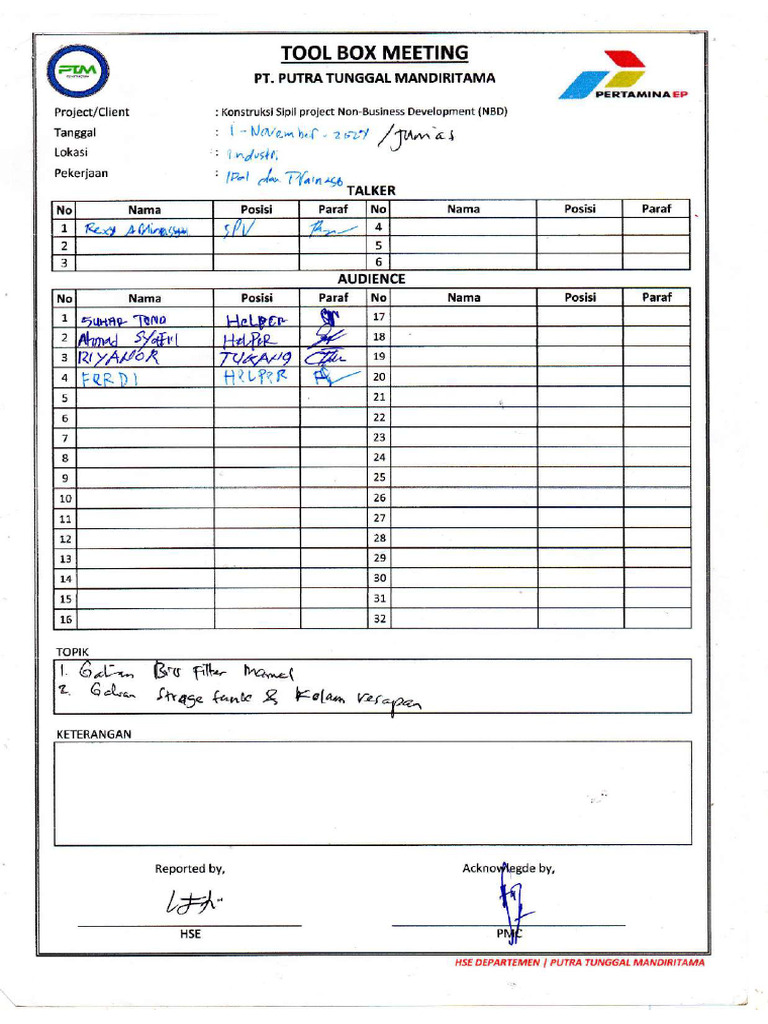 PTM
TOOL BOX MEETING
PT. PUTRA TUNGGAL MANDIRITAMA
PERTAMINA EP
Project/Client : Konstruksi Sipil project Non-Business Development (NBD)
Tanggal : 1 - November - 2024 /Jumas
Lokasi : Industri
Pekerjaan : IPal dan Drainase
TALKER
No Nama Posisi Paraf No Nama Posisi Paraf
1 Rexy SPV 4
2 5
3 6
AUDIENCE
No Nama Posisi Paraf No Nama Posisi Paraf
1 SUHAR TONO HeLPER 17
2 Ahmad HeLPER 18
3 RIYANOR TUKANG 19
4 FERDI HELPER 20
5 21
6 22
7 23
8 24
9 25
10 26
11 27
12 28
13 29
14 30
15 31
16 32
TOPIK
1. Galian Bio Filter Mamel
2. Galian Strage tank & Kolam resapan
KETERANGAN
Reported by, Acknowlegde by,
HSE PMC
HSE DEPARTEMEN | PUTRA TUNGGAL MANDIRITAMA